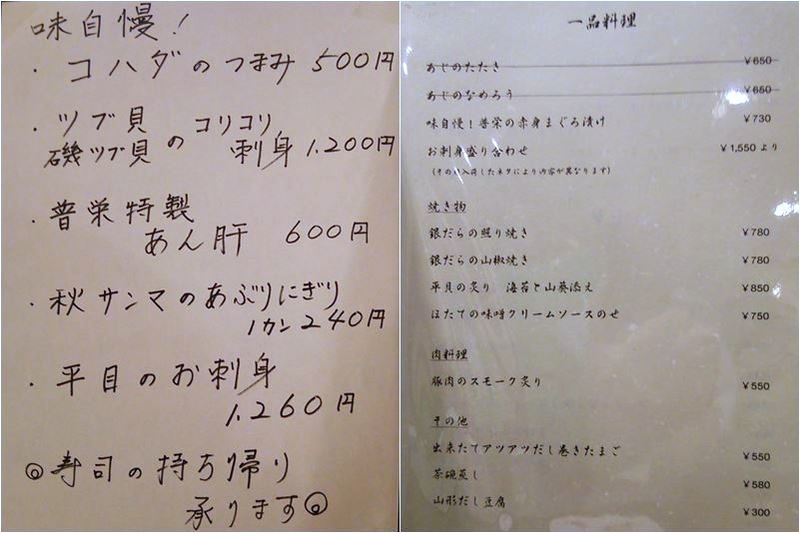 味自慢!
・コハダのつまみ 500円
・ツブ貝 の コリコリ
磯ツブ貝 刺身 1.200円
・普栄特製
あん肝 600円
・秋サンマのあぶりにぎり
1カン240円
・平目のお刺身
1.260円
◎寿司の持ち帰り
承ります◎
一品料理
あじのたたき ¥650
あじのなめろう ¥650
味自慢!普栄の赤身まぐろ漬け ¥730
お刺身盛り合わせ ¥1,550より
(その日入荷したネタにより内容が異なります)
焼き物
銀だらの照り焼き ¥780
銀だらの山椒焼き ¥780
平貝の炙り 海苔と山葵添え ¥850
ほたての味噌クリームソースのせ ¥750
肉料理
豚肉のスモーク炙り ¥550
その他
出来たてアツアツだし巻きたまご ¥550
茶碗蒸し ¥580
山形だし豆腐 ¥300